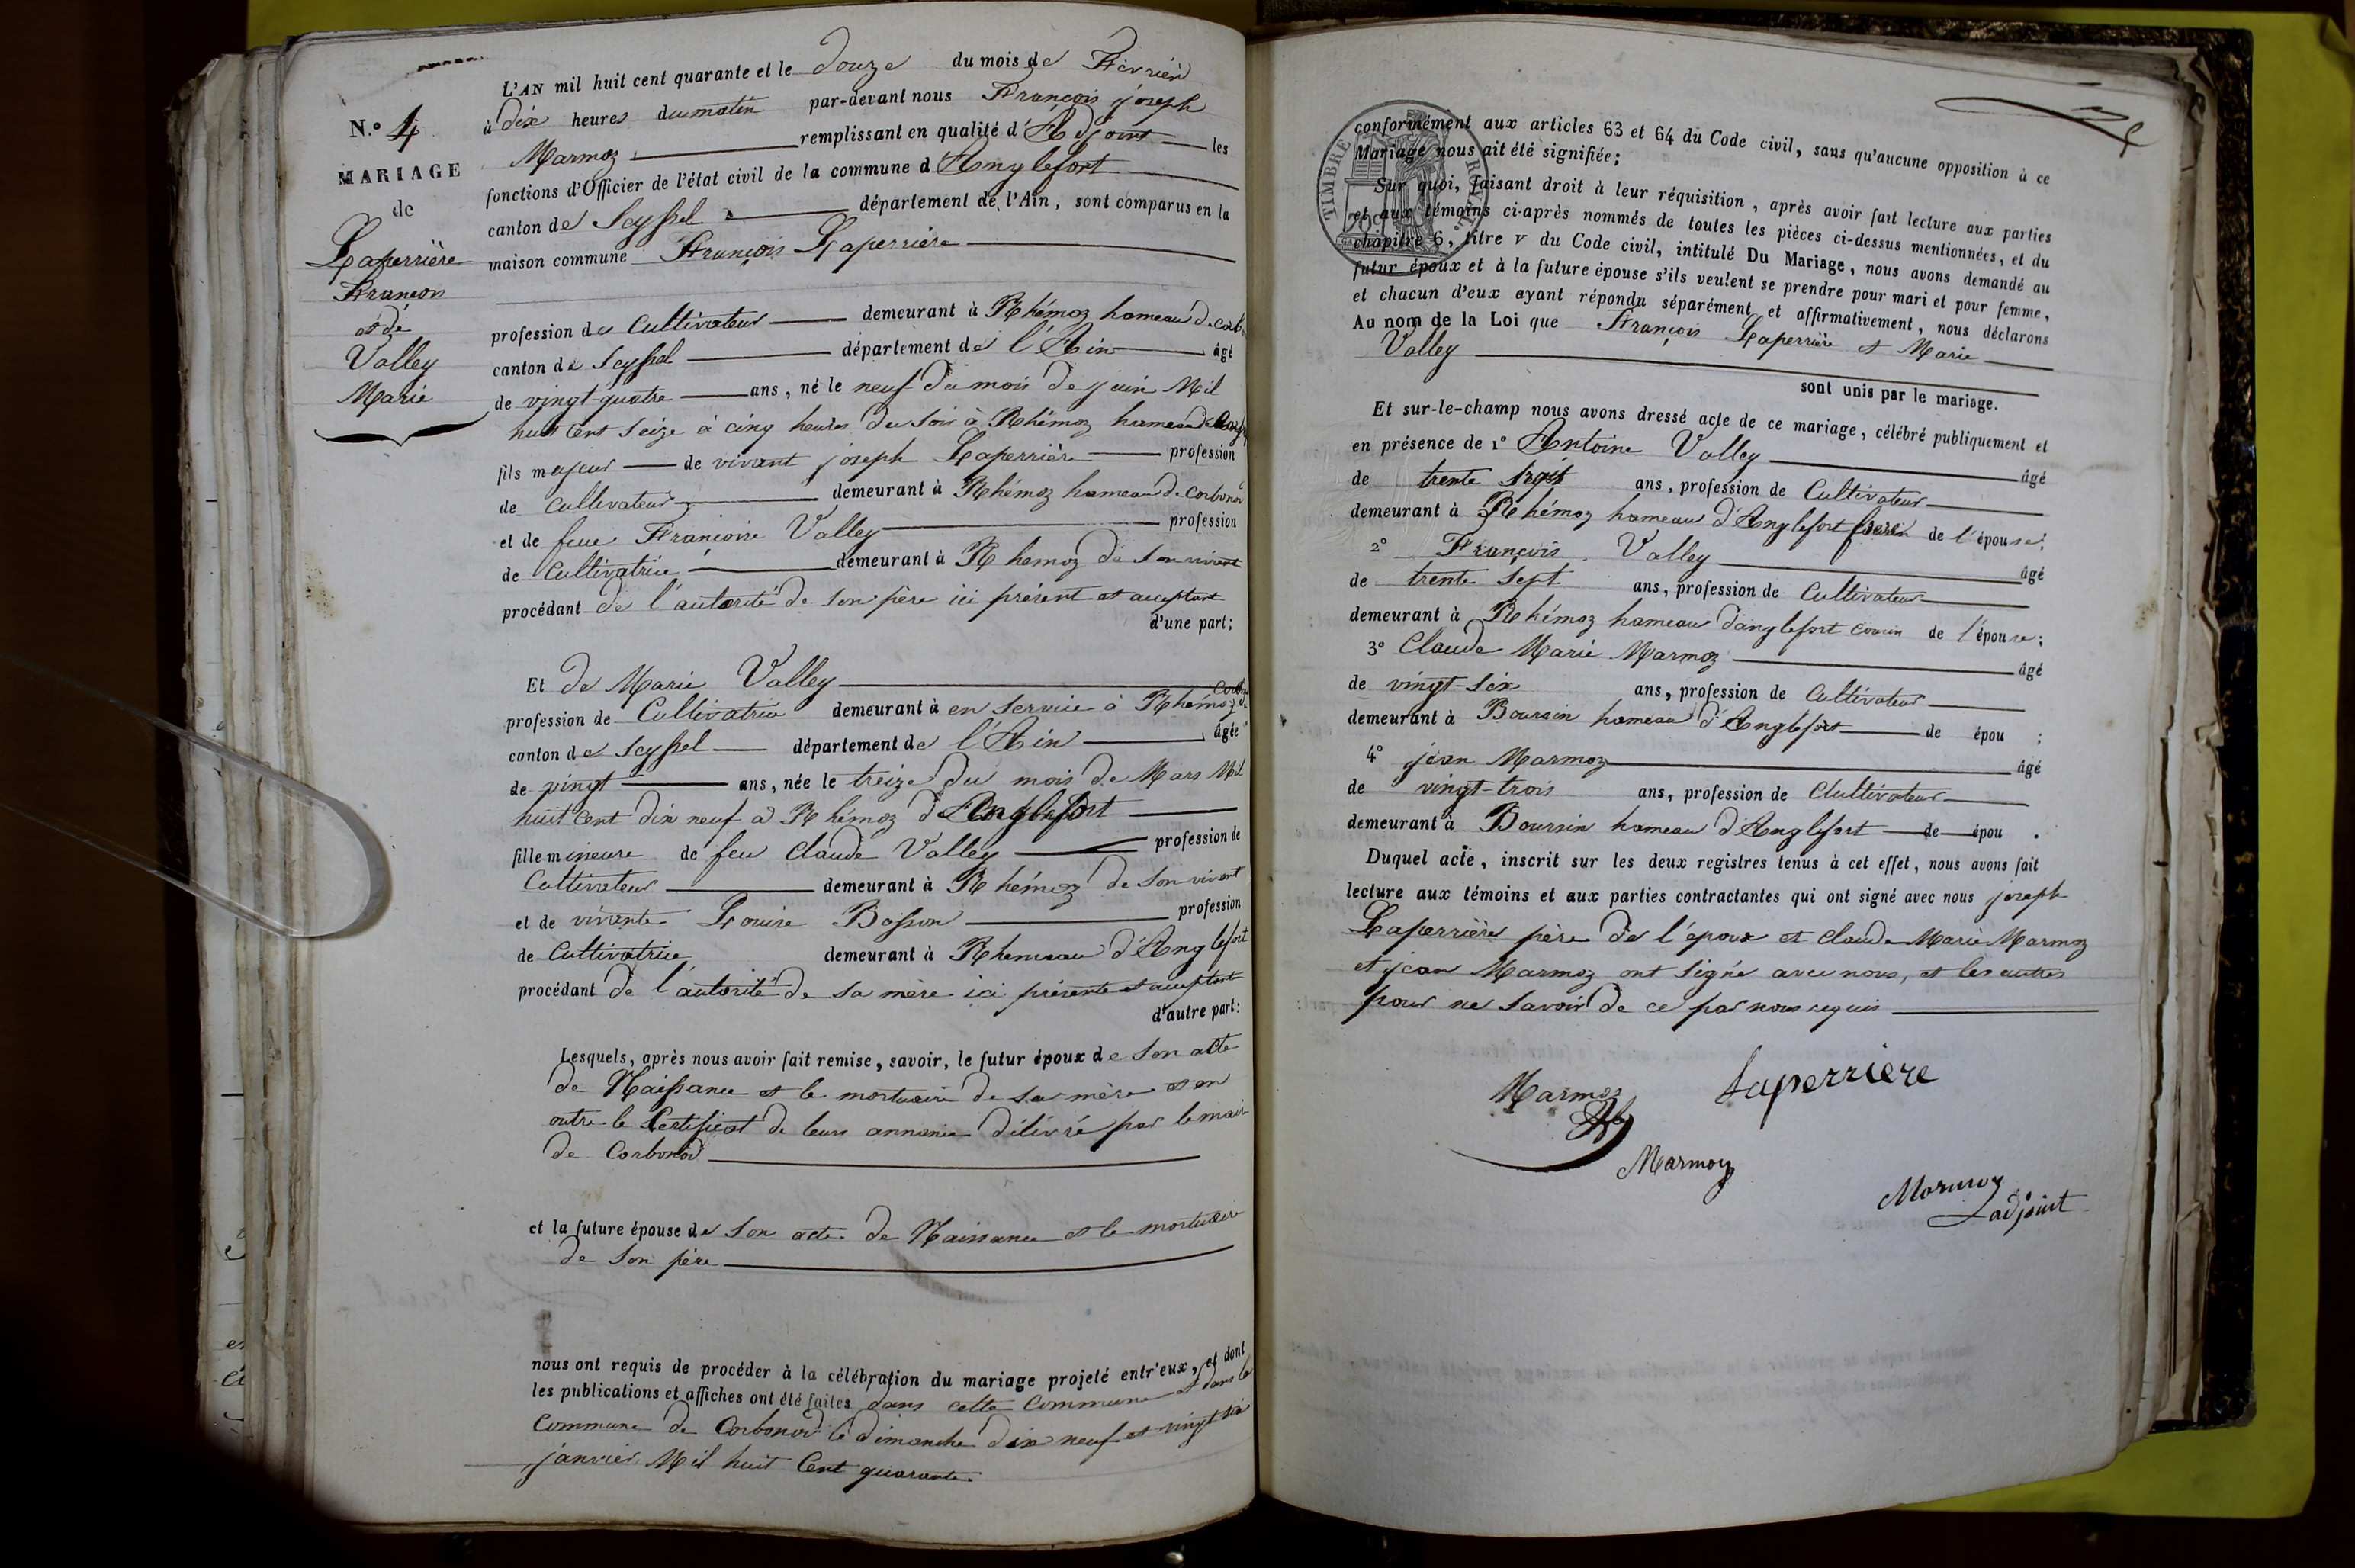 L'AN mil huit cent quarante et le douze du mois de Février
à dix heures du matin par-devant nous François joseph
Marmoz remplissant en qualité d'Adjoint les
fonctions d'Officier de l'état civil de la commune d'Anglefort
canton de Seyssel département de l'Ain, sont comparus en la
maison commune François Laperrière
N.º 4
MARIAGE
de
Laperrière
François
et de
Valley
Marie
profession de Cultivateur demeurant à Rhémoz hameau de
canton de Seyssel département de l'Ain âgé
de vingt-quatre ans, né le neuf du mois de juin Mil
huit cent seize à cinq heures du soir à Rhémoz hameau
fils majeur de vivant joseph Laperrière profession
de Cultivateur demeurant à Rhémoz hameau de Corbonod
et de feue Françoise Valley profession
de Cultivatrice demeurant à Rhemoz de son vivant
procédant de l'autorité de son père ici présent et acceptant
d'une part;
Et de Marie Valley
profession de Cultivatrice demeurant à en service à Rhémoz
canton de Seyssel département de l'Ain âgée
de vingt ans, née le treize du mois de Mars Mil
huit cent dix neuf à Rhémoz d'Anglefort
fille mineure de feu Claude Valley profession de
Cultivateur demeurant à Rhémoz de son vivant
et de vivante Louise Bosson profession
de Cultivatrice demeurant à Rhemeau d'Anglefort
procédant de l'autorité de sa mère ici présente et acceptant
d'autre part:
Lesquels, après nous avoir fait remise, savoir, le futur époux de son acte
de Naissance et le mortuaire de sa mère et en
outre le Certificat de leurs annonces délivré par le maire
de Corbonod
et la future épouse de son acte de Naissance et le mortuaire
de son père
nous ont requis de procéder à la célébration du mariage projeté entr'eux, et dont
les publications et affiches ont été faites dans cette Commune et dans la
Commune de Corbonod le dimanche dix neuf et vingt six
janvier Mil huit Cent quarante.
TIMBRE ROYAL
70c
conformément aux articles 63 et 64 du Code civil, sans qu'aucune opposition à ce
Mariage nous ait été signifiée;
Sur quoi, faisant droit à leur réquisition, après avoir fait lecture aux parties
et aux témoins ci-après nommés de toutes les pièces ci-dessus mentionnées, et du
chapitre 6, titre v du Code civil, intitulé Du Mariage, nous avons demandé au
futur époux et à la future épouse s'ils veulent se prendre pour mari et pour femme,
et chacun d'eux ayant répondu séparément et affirmativement, nous déclarons
Au nom de la Loi que François Laperrière et Marie
Valley
sont unis par le mariage.
Et sur-le-champ nous avons dressé acte de ce mariage, célébré publiquement et
en présence de 1º Antoine Valley âgé
de trente ans, profession de Cultivateur
demeurant à Rhémoz hameau d'Anglefort frère de l'épouse;
2º François Valley âgé
de trente sept ans, profession de Cultivateur
demeurant à Rhémoz hameau d'anglefort cousin de l'épouse;
3º Claude Marie Marmoz âgé
de vingt-six ans, profession de Cultivateur
demeurant à Boursin hameau d'Anglefort de épou ;
4º jean Marmoz âgé
de vingt-trois ans, profession de Cultivateur
demeurant à Boursin hameau d'Anglefort de épou .
Duquel acte, inscrit sur les deux registres tenus à cet effet, nous avons fait
lecture aux témoins et aux parties contractantes qui ont signé avec nous joseph
Laperrière père de l'époux et Claude Marie Marmoz
et jean Marmoz ont signé avec nous, et les autres
pour ne savoir de ce par nous requis
Marmoz laperriere
Marmoz
Marmoz
adjoint